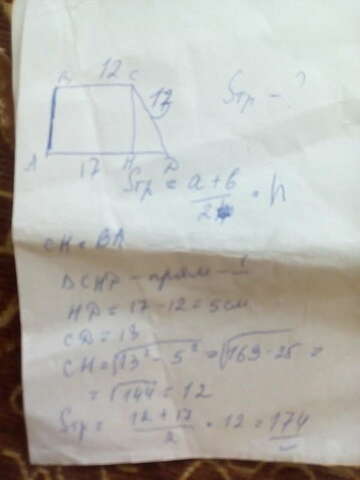 B 12 C
13
Sтр - ?
A 17 H D
Sтр = a + b / 2 · h
CH = BA
ΔCHD - прям -
HD = 17 - 12 = 5 см
CD = 13
CH = √13² - 5² = √169 - 25 =
= √144 = 12
Sтр = 12 + 17 / 2 · 12 = 174